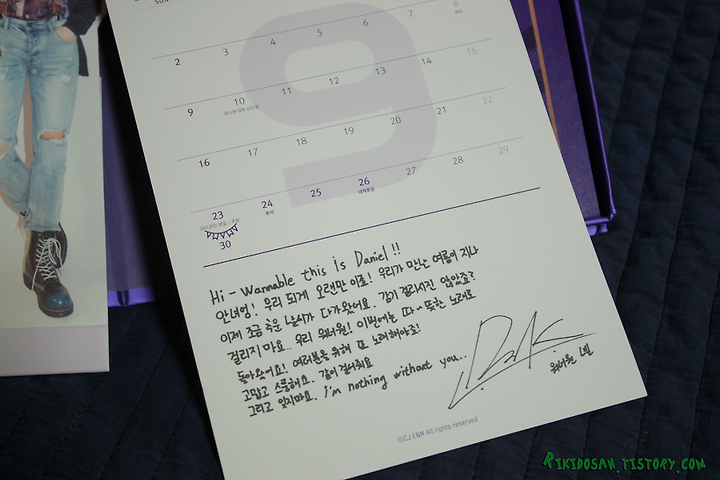 SUN
2 3 4 5 6 7 8
9 10 11 12 13 14 15
16 17 18 19 20 21 22
23 24 25 26 27 28 29
추석 대체휴일
30
Hi - Wannable this is Daniel !!
안녀엉! 우리 되게 오랜만이죠! 우리가 만난 여름이 지나
이제 조금 추운 날씨가 다가왔어요. 감기 걸리시진 않았죠?
걸리지 마요.. 우리 워너원! 이번에는 따-뜻한 노래로
돌아왔어요! 여러분을 위해 또 노래해야죠!
고맙고 소중해요. 같이 걸어줘요
그리고 잊지마요. i'm nothing without you..
워너원
©CJ E&M All rights reserved
RIKIDOSAN.TISTORY.COM